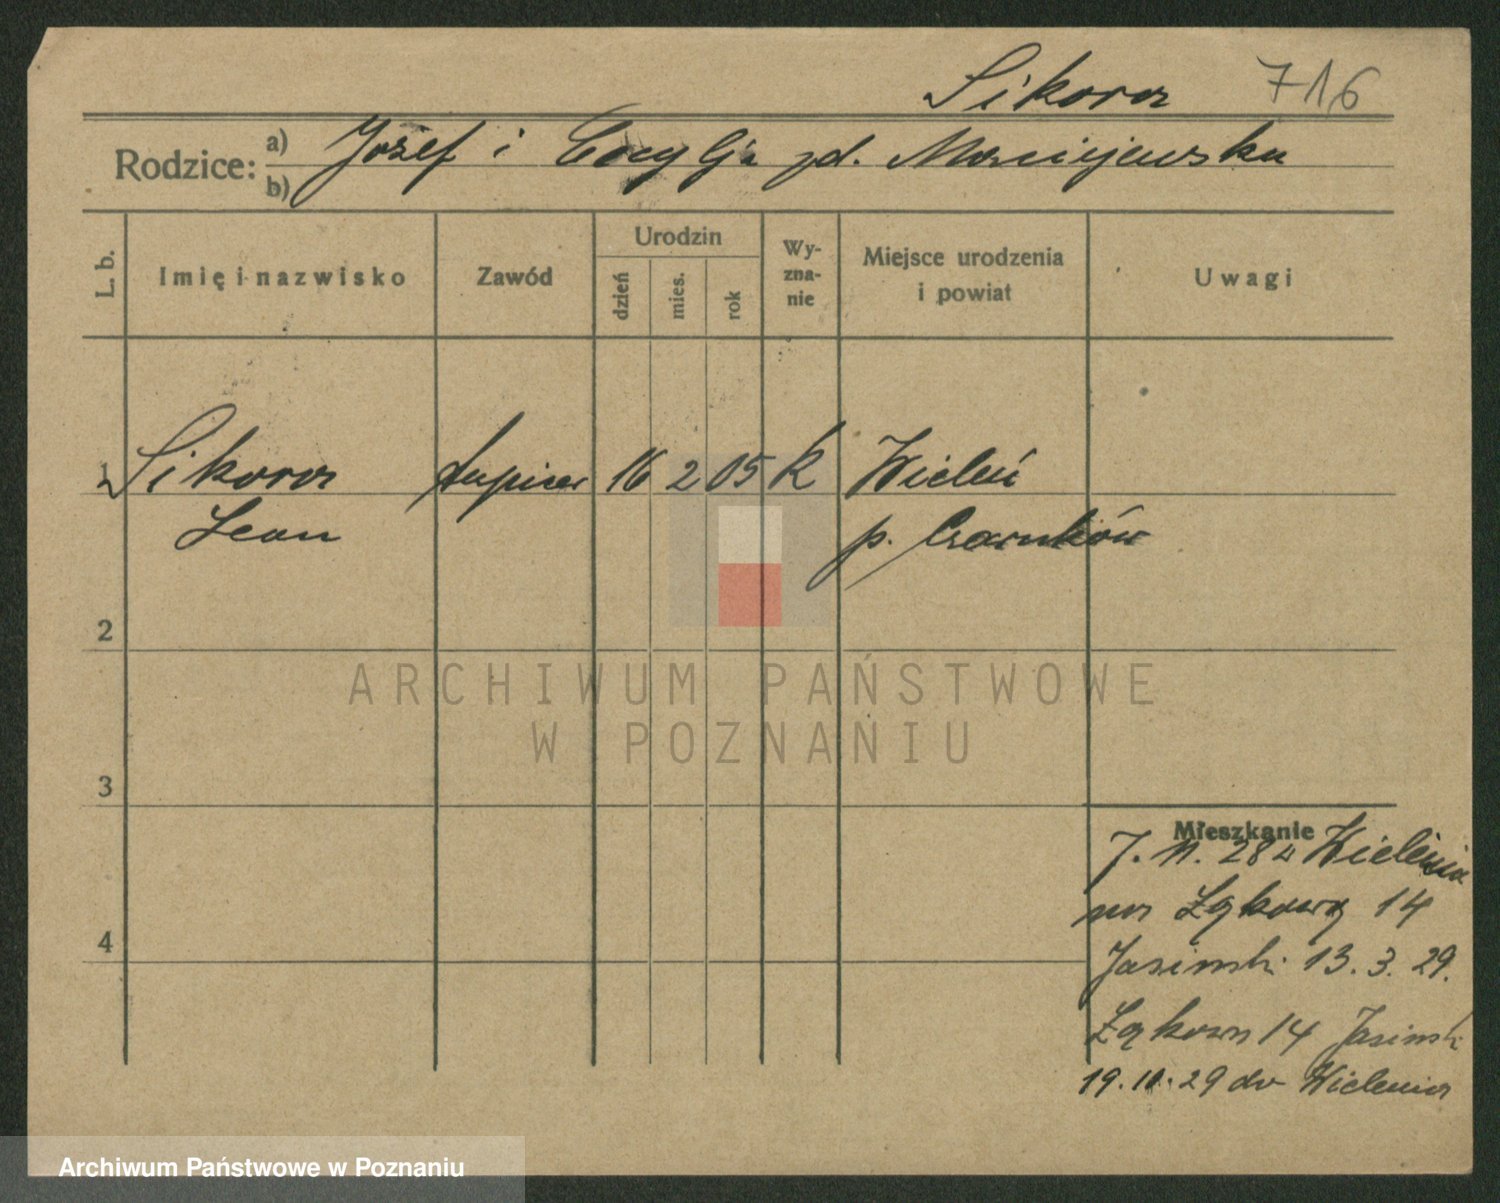 Sikora 716
Rodzice: a) Józef i Cecylja zd. Maciejewska
b)
L. b. Imię i nazwisko Zawód Urodzin dzień mies. rok Wy-zna-nie Miejsce urodzenia i powiat Uwagi
1 Sikora 16 2 05 k Wieleń
Leon p. Czarnków
2
3
4
Mieszkanie
7. 11. 28 z Wielenia
na Łąkową 14
Jasiński 13. 3. 29.
Łąkowa 14 Jasiński
19. 11. 29 do Wielenia
ARCHIWUM PAŃSTWOWE
W POZNANIU
Archiwum Państwowe w Poznaniu